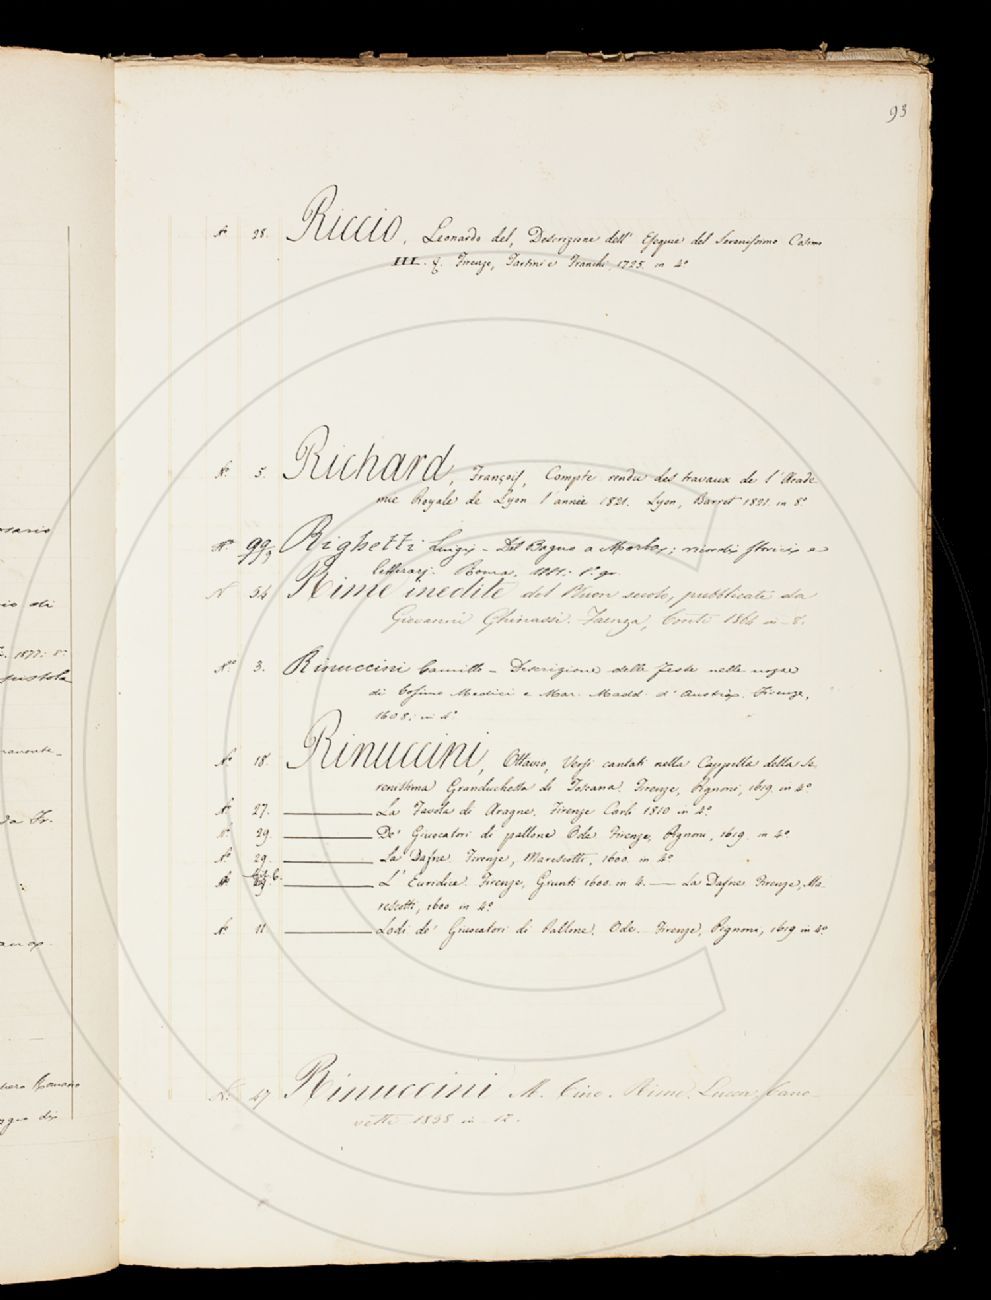 93
N.° 28. Riccio, Leonardo del, Descrizione dell' Esequie del Serenissimo Cosimo
III. Firenze, Tartini e Franchi 1725. in 4.°
N.° 5. Richard, François, Compte rendu des travaux de l'Acade
mie Royale de Lyon l'année 1821. Lyon, Barret 1821. in 8.°
N.° 99. Righetti Luigi – Del Bagno a Morbo; ricordi storici e
letterarj. Roma, 8.°
N. 54 Rime inedite del Buon secolo, pubblicate da
Giovanni Ghinassi. Faenza, Conti 1864 in 8.
N.° 3. Rinuccini Cammillo – Descrizione delle feste nelle nozze
di Cosimo Medici e Mar. Madd. d'Austria. Firenze,
1608. in 4.°
N.° 18. Rinuccini, Ottavio, Versi cantati nella Cappella della Se-
renissima Granduchessa di Toscana. Firenze, Pignoni, 1619. in 4.°
N.° 27. La Favola di Aragne. Firenze Carli 1810 in 4.°
N.° 29. De' Giuocatori di pallone Ode Firenze, Pignoni, 1619. in 4.°
N.° 29. La Dafne. Firenze, Marescotti, 1600. in 4.°
N.° L' Euridice. Firenze, Giunti 1600. in 4. — La Dafne Firenze, Ma-
rescotti, 1600 in 4.°
N.° 11 Lodi de' Giuocatori di Pallone. Ode. – Firenze, Pignoni, 1619 in 4.°
N. 47 Rinuccini M. Cino. Rime. Lucca. Cano-
vetti 1858 in 12.
rosario
1877: 8.°
epistola
Romano